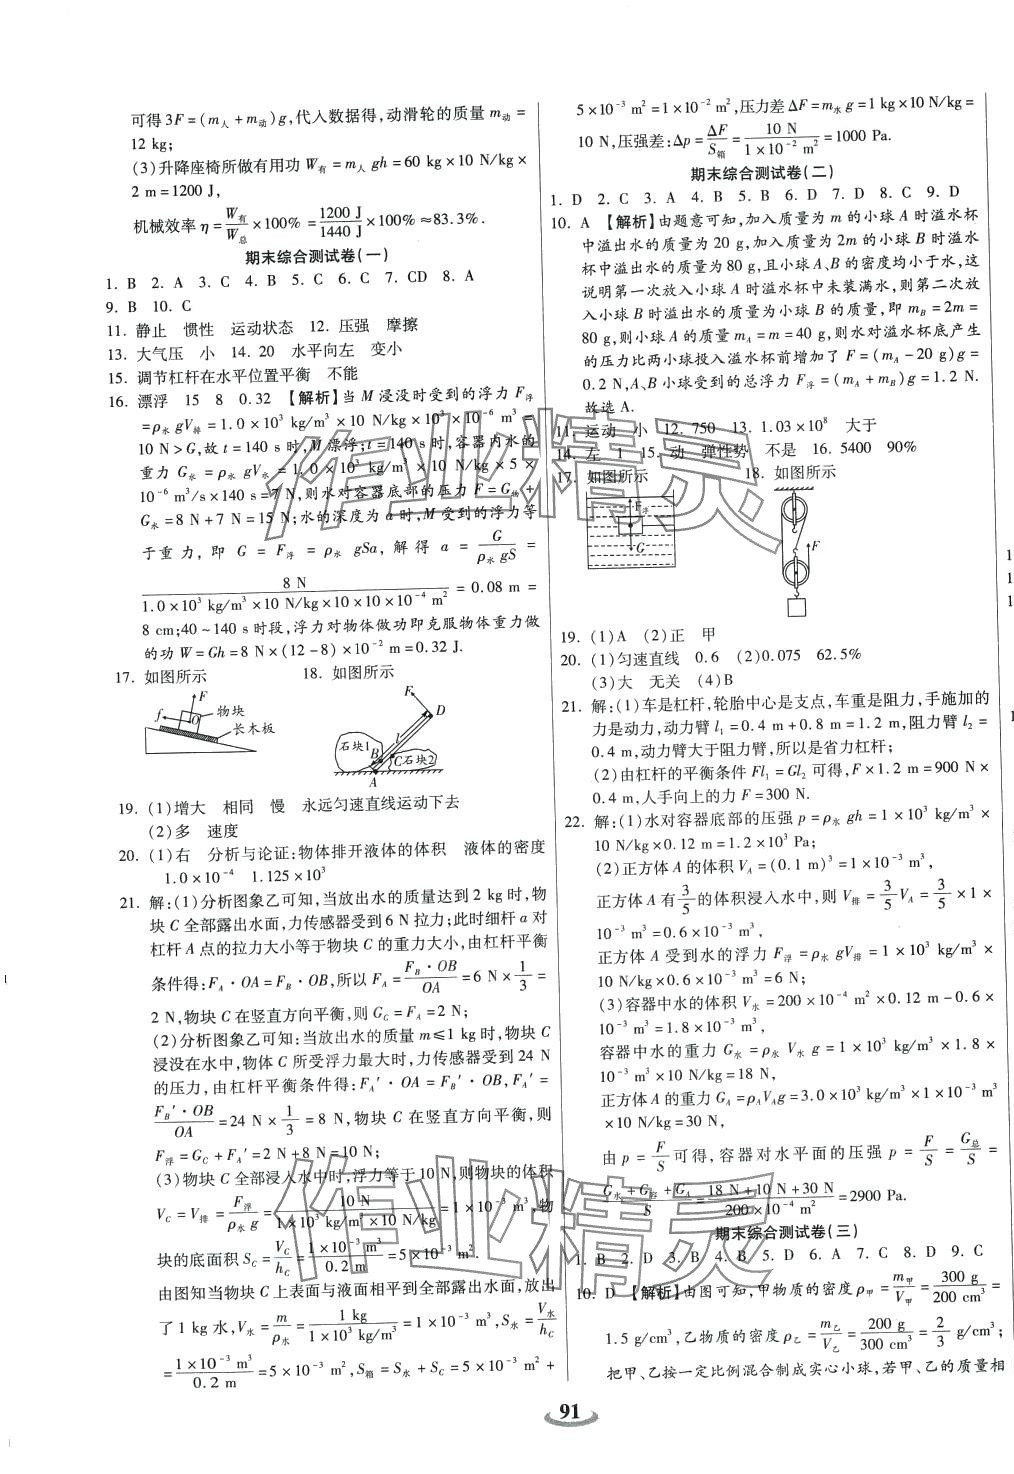 可得3F=(m人+m动)g,代入数据得,动滑轮的质量m动=
12 kg;
(3)升降座椅所做有用功W有=m人gh=60 kg×10 N/kg×
2 m=1200 J,
机械效率η=W有/W总×100%=1200 J/1440 J×100%≈83.3%.
期末综合测试卷(一)
1. B 2. A 3. C 4. B 5. C 6. C 7. CD 8. A
9. B 10. C
11. 静止 惯性 运动状态 12. 压强 摩擦
13. 大气压 小 14. 20 水平向左 变小
15. 调节杠杆在水平位置平衡 不能
16. 漂浮 15 8 0.32 【解析】当M浸没时受到的浮力F浮
=ρ水gV排=1.0×10³ kg/m³×10 N/kg×10×10×10⁻⁶ m³=
10 N>G,故t=140 s时,M漂浮;t=140 s时,容器内水的
重力G水=ρ水gV水=1.0×10³ kg/m³×10 N/kg×5×
10⁻⁶ m³/s×140 s=7 N,则水对容器底部的压力F=G物+
G水=8 N+7 N=15 N;水的深度为a时,M受到的浮力等
于重力,即G=F浮=ρ水gSa,解得a=G/ρ水gS=
8 N/1.0×10³ kg/m³×10 N/kg×10×10×10⁻⁴ m²=0.08 m=
8 cm;40~140 s时段,浮力对物体做功即克服物体重力做
的功W=Gh=8 N×(12-8)×10⁻² m=0.32 J.
17. 如图所示 18. 如图所示
F f O 物块 长木板
F D l 石块1 B C 石块2 A
19. (1)增大 相同 慢 永远匀速直线运动下去
(2)多 速度
20. (1)右 分析与论证:物体排开液体的体积 液体的密度
1.0×10⁻⁴ 1.125×10³
21. 解:(1)分析图象乙可知,当放出水的质量达到2 kg时,物
块C全部露出水面,力传感器受到6 N拉力;此时细杆a对
杠杆A点的拉力大小等于物块C的重力大小,由杠杆平衡
条件得:FA·OA=FB·OB,所以FA=FB·OB/OA=6 N×1/3=
2 N,物块C在竖直方向平衡,则GC=FA=2 N;
(2)分析图象乙可知:当放出水的质量m≤1 kg时,物块C
浸没在水中,物体C所受浮力最大时,力传感器受到24 N
的压力,由杠杆平衡条件得:FA′·OA=FB′·OB,FA′=
FB′·OB/OA=24 N×1/3=8 N,物块C在竖直方向平衡,则
F浮=GC+FA′=2 N+8 N=10 N;
(3)物块C全部浸入水中时,浮力等于10 N,则物块C的体积
VC=V排=F浮/ρ水g=10 N/1×10³ kg/m³×10 N/kg=1×10⁻³ m³,物
块的底面积SC=VC/hC=1×10⁻³ m³/0.2 m=5×10⁻³ m²,
由图知当物块C上表面与液面相平到全部露出水面,放出
了1 kg水,V水=m/ρ水=1 kg/1×10³ kg/m³=1×10⁻³ m³,S水=V水/hC
=1×10⁻³ m³/0.2 m=5×10⁻³ m²,S箱=S水+SC=5×10⁻³ m²+
5×10⁻³ m²=1×10⁻² m²,压力差ΔF=m水g=1 kg×10 N/kg=
10 N,压强差:Δp=ΔF/S箱=10 N/1×10⁻² m²=1000 Pa.
期末综合测试卷(二)
1. D 2. C 3. A 4. B 5. B 6. D 7. D 8. C 9. D
10. A 【解析】由题意可知,加入质量为m的小球A时溢水杯
中溢出水的质量为20 g,加入质量为2m的小球B时溢水
杯中溢出水的质量为80 g,且小球A、B的密度均小于水,这
说明第一次放入小球A时溢水杯中未装满水,则第二次放
入小球B时溢出水的质量为小球B的质量,即mB=2m=
80 g,则小球A的质量mA=m=40 g,则水对溢水杯底产生
的压力比两小球投入溢水杯前增加了F=(mA-20 g)g=
0.2 N,A、B小球受到的总浮力F浮=(mA+mB)g=1.2 N.
故选A.
11. 运动 小 12. 750 13. 1.03×10⁸ 大于
14. 左 1 15. 动 弹性势 不是 16. 5400 90%
17. 如图所示 18. 如图所示
F浮 G
F
19. (1)A (2)正 甲
20. (1)匀速直线 0.6 (2)0.075 62.5%
(3)大 无关 (4)B
21. 解:(1)车是杠杆,轮胎中心是支点,车重是阻力,手施加的
力是动力,动力臂l₁=0.4 m+0.8 m=1.2 m,阻力臂l₂=
0.4 m,动力臂大于阻力臂,所以是省力杠杆;
(2)由杠杆的平衡条件Fl₁=Gl₂可得,F×1.2 m=900 N×
0.4 m,人手向上的力F=300 N.
22. 解:(1)水对容器底部的压强p=ρ水gh=1×10³ kg/m³×
10 N/kg×0.12 m=1.2×10³ Pa;
(2)正方体A的体积VA=(0.1 m)³=1×10⁻³ m³,
正方体A有3/5的体积浸入水中,则V排=3/5VA=3/5×1×
10⁻³ m³=0.6×10⁻³ m³,
正方体A受到水的浮力F浮=ρ水gV排=1×10³ kg/m³×
10 N/kg×0.6×10⁻³ m³=6 N;
(3)容器中水的体积V水=200×10⁻⁴ m²×0.12 m-0.6×
10⁻³ m³=1.8×10⁻³ m³,
容器中水的重力G水=ρ水V水g=1×10³ kg/m³×1.8×
10⁻³ m³×10 N/kg=18 N,
正方体A的重力GA=ρAVAg=3.0×10³ kg/m³×1×10⁻³ m³
×10 N/kg=30 N,
由p=F/S可得,容器对水平面的压强p=F/S=G总/S=
G水+G容+GA/S=18 N+10 N+30 N/200×10⁻⁴ m²=2900 Pa.
期末综合测试卷(三)
1. B 2. D 3. B 4. B 5. D 6. A 7. C 8. D 9. C
10. D 【解析】由图可知,甲物质的密度ρ甲=m甲/V甲=300 g/200 cm³=
1.5 g/cm³,乙物质的密度ρ乙=m乙/V乙=200 g/300 cm³=2/3 g/cm³;
把甲、乙按一定比例混合制成实心小球,若甲、乙的质量相
91
作业精灵
作业精灵